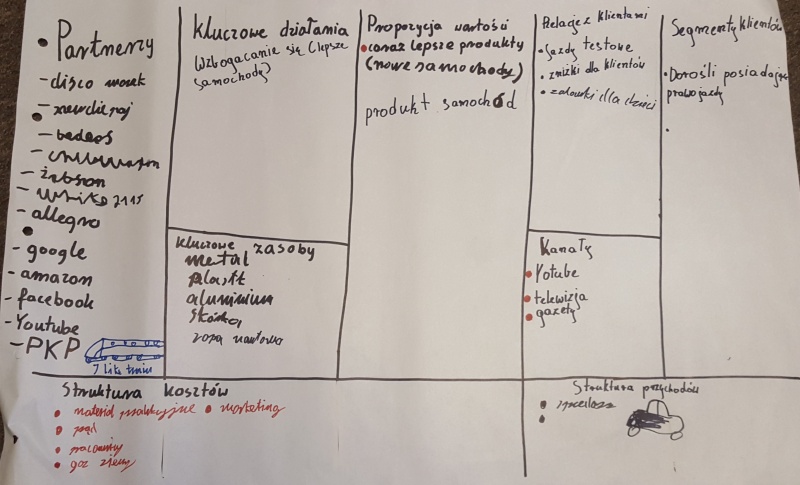 Partnerzy
- disco
-
- bedeos
-
- żabson
- 2115
- allegro
- google
- amazon
- facebook
- Youtube
- PKP
7 I like train
Kluczowe działania
(Wzbogacanie się (lepsze
samochody)
Kluczowe zasoby
metal
plastik
aluminium
skóra
ropa naftowa
Propozycja wartości
coraz lepsze produkty
(nowe samochody)
produkt samochód
Relacje z klientami
jazdy testowe
zniżki dla klientów
zabawki dla dzieci
Kanały
Yotube
telewizja
gazety
Segmenty klientów
Dorośli posiadający
prawo jazdy
Struktura kosztów
materiał produkcyjne • marketing
prąd
pracownicy
gaz ziemny
Struktura przychodów